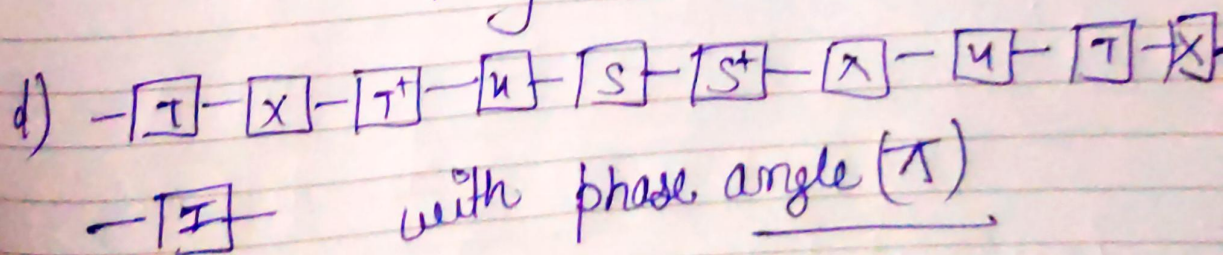 d) -[T]-[X]-[T†]-[H]-[S]-[S†]-[X]-[H]-[T]-[X]-
-[I]- with phase angle (π)